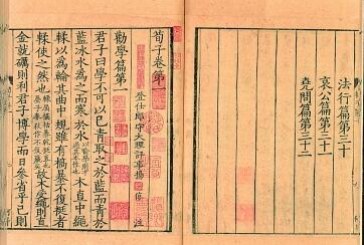 法行篇第三十
哀公篇第三十一
堯問篇第三十二
荀子卷第一
登仕郎守大理評事楊倞注
勸學篇第一
君子曰學不可以已青取之於藍而青於
藍冰水為之而寒於水木直中繩
輮以為輪其曲中規雖有槁暴不復挺者
輮使之然也故木受繩則直
金就礪則利君子博學而日參省乎己則